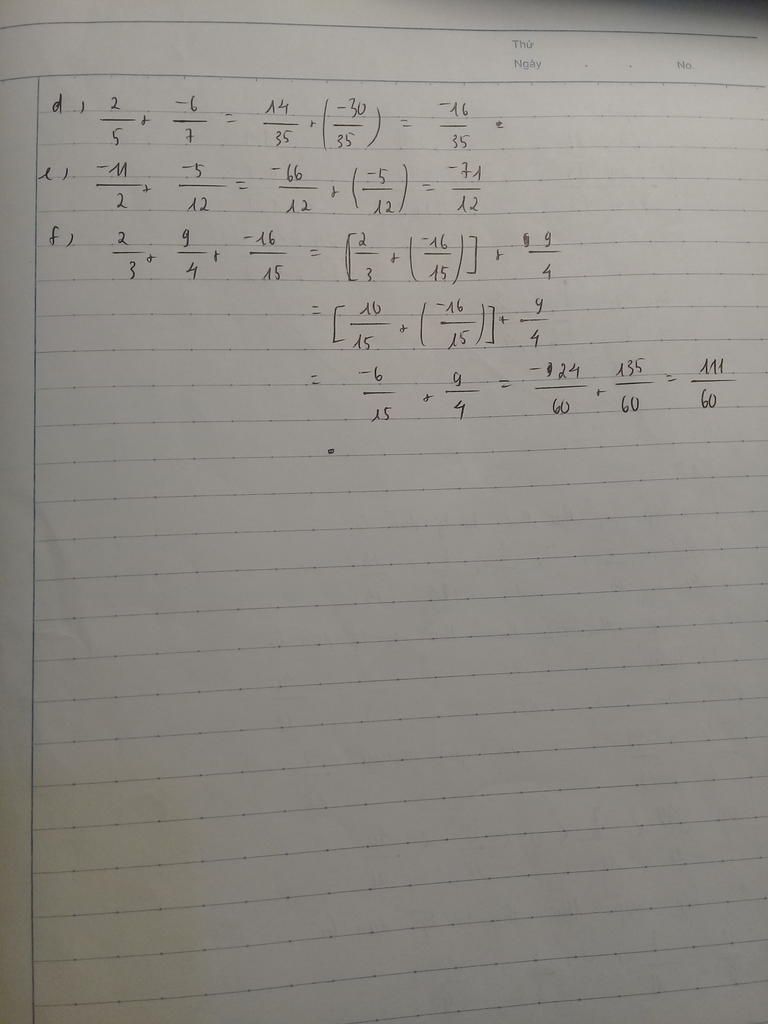 Thứ
Ngày . . No.
d, 2/5 + -6/7 = 14/35 + (-30/35) = -16/35 .
e, -11/2 + -5/12 = -66/12 + (-5/12) = -71/12
f, 2/3 + 9/4 + -16/15 = [2/3 + (-16/15)] + 9/4
= [10/15 + (-16/15)] + 9/4
= -6/15 + 9/4 = -24/60 + 135/60 = 111/60